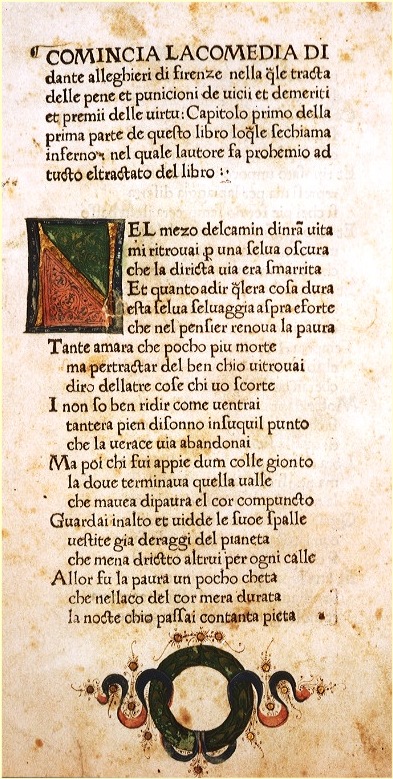 ¶ COMINCIA LACOMEDIA DI
dante alleghieri di firenze nella q̃le tracta
delle pene et punicioni de uicii et demeriti
et premii delle uirtu: Capitolo primo della
prima parte de questo libro loq̃le sechiama
inferno: nel quale lautore fa prohemio ad
tucto eltractato del libro :.
NEL mezo delcamin dinrã uita
mi ritrouai ꝑ una selua oscura
che la diricta uia era smarrita
Et quanto adir q̃lera cosa dura
esta selua seluaggia aspra eforte
che nel pensier renoua la paura
Tante amara che pocho piu morte
ma pertractar del ben chio uitrouai
diro dellatre cose chi uo scorte
I non so ben ridir come uentrai
tantera pien disonno insuquil punto
che la uerace uia abandonai
Ma poi chi fui appie dum colle gionto
la doue terminaua quella ualle
che mauea dipaura el cor compuncto
Guardai inalto et uidde le suoe spalle
uestite gia deraggi del pianeta
che mena drictto altrui per ogni calle
Allor fu la paura un pocho cheta
che nellaco del cor mera durata
la nocte chio passai contanta pieta